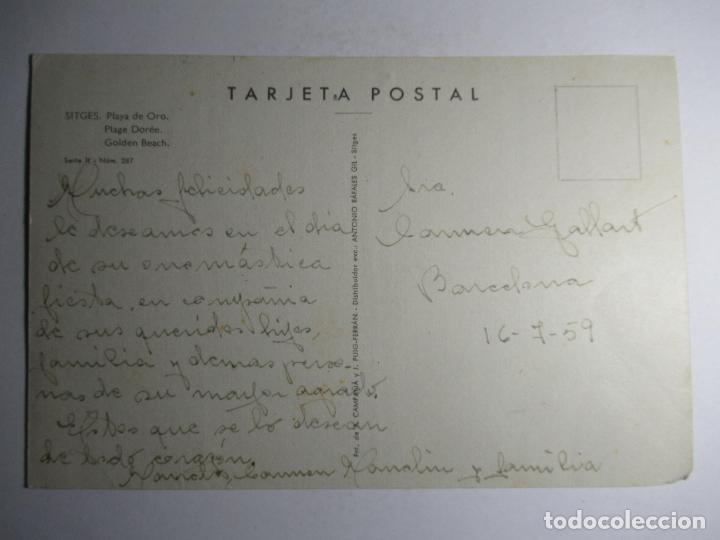 TARJETA POSTAL
SITGES. Playa de Oro.
Plage Dorée.
Golden Beach.
Serie II - Núm. 287
Muchas felicidades
le deseamos en el día
de su onomástica
fiesta, en compañía
de sus queridos hijos,
familia y demas perso-
nas de su mayor agrado.
Estos que se lo desean
de todo corazón.
Carmen Manolin y familia
Fot. de A. CAMPAÑÁ y J. PUIG-FERRÁN - Distribuidor exc.: ANTONIO RÁFALES GIL - Sitges
Sra.
Carmen Gallart
Barcelona
16-7-59
todocoleccion.net